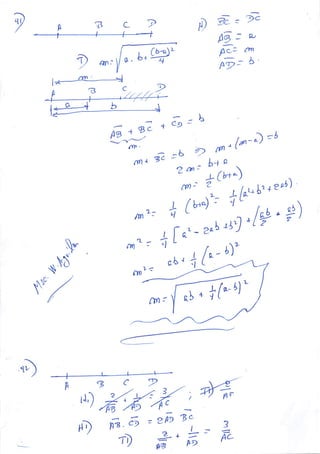 41)
A B C D
H) BC = DC
AB = a
AC = m
AD = b.
T) m = √a.b + (b-a)²/4
m
A B C D
a b
AB + BC + CD = b
m
m + BC = b ⇒ m + (m-a) = b
2m = b+a
m = 1/2 (b+a)
m² = 1/4 (b+a)² = 1/4 (a²+b²+2ab).
m² = 1/4 [a² - 2ab + b²] + (ab/2 + ab/2)
m² = ab + 1/4 (a-b)²
m = √ab + 1/4 (a-b)²
42)
A B C D
H.) 2/AB + 1/AD = 3/AC ; T) 2/AC
H) AB . CD = 2AD BC
T) 2/AB + 1/AD = 3/AC